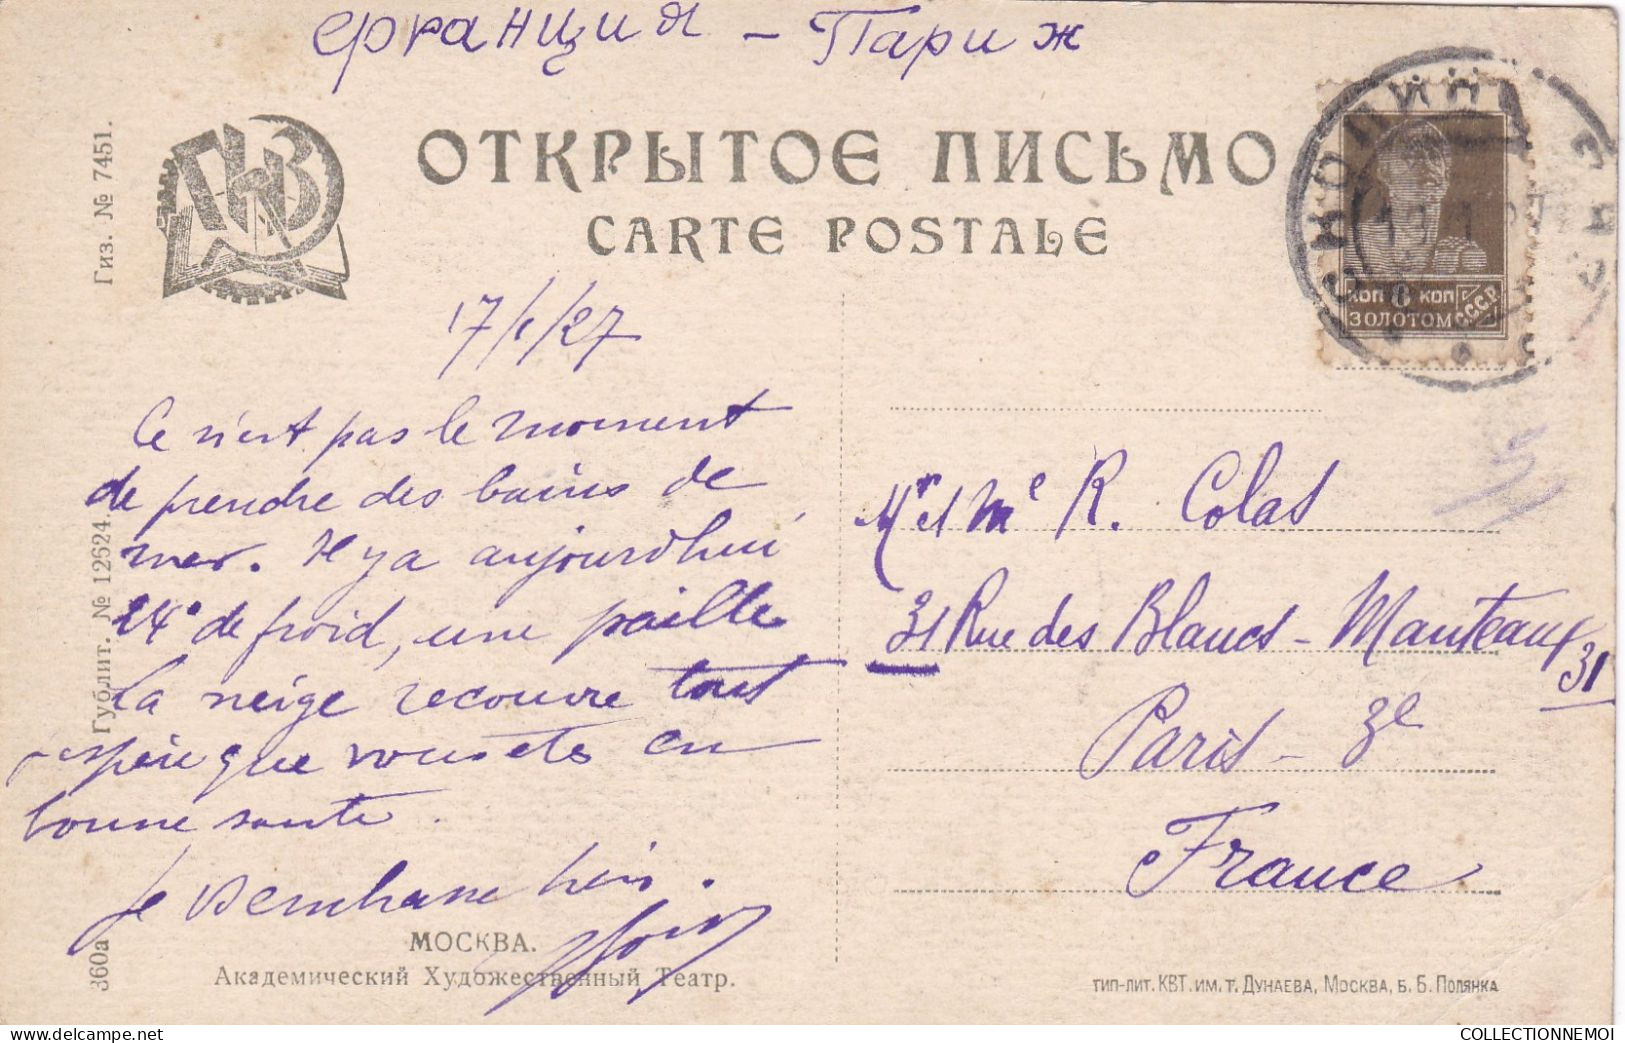 Франция - Париж
ОТКРЫТОЕ ПИСЬМО
CARTE POSTALE
Гиз. № 7451.
КОП 8 КОП
ЗОЛОТОМ С.С.С.Р.
17/1/27
Ce n'est pas le moment
de prendre des bains de
mer. Il y a aujourd'hui
24° de froid, une paille
La neige recouvre tout
espère que vous êtes en
bonne santé.
Je vous
Mr et Me R. Colas
31 Rue des Blancs-Manteaux
31
Paris - 3e
France
Гублит. № 12624.
360а
МОСКВА.
Академический Художественный Театр.
ТИП-ЛИТ. КВТ. ИМ. Т. ДУНАЕВА, МОСКВА, Б. Б. ПОЛЯНКА
COLLECTIONNEMOI